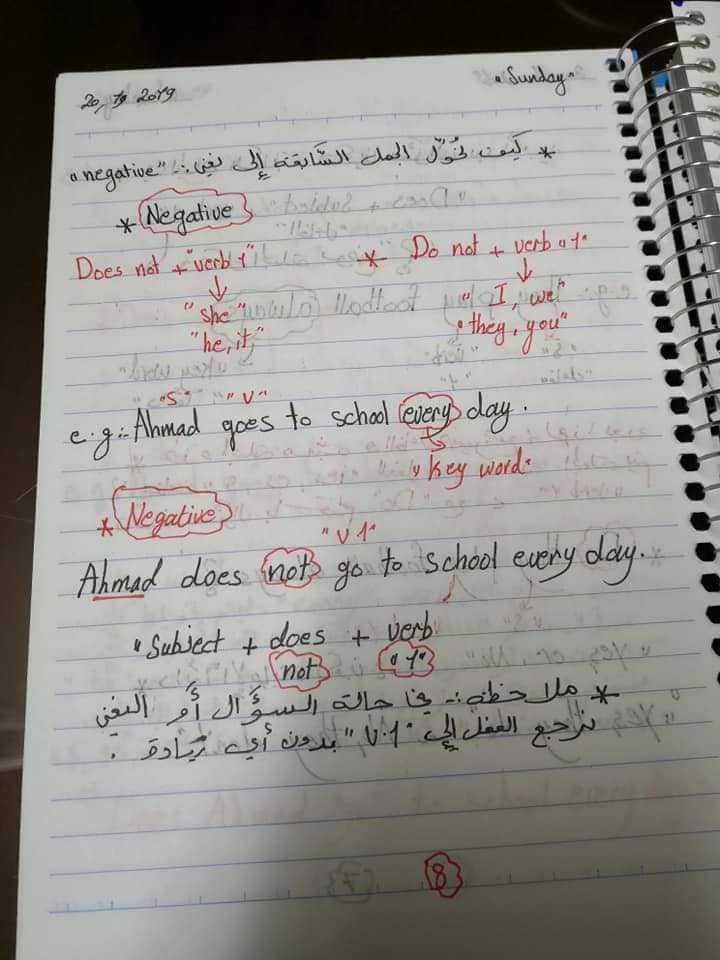 20, 10 2019
"Sunday"
* كيف نُحوّل الجمل السّابقة إلى نفي :. "negative"
* Negative
Does not + "verb 1" * Do not + verb "1"
"she" "I, we"
"he, it" "they, you"
"S" "V"
e.g:. Ahmad goes to school every day.
"key word"
* Negative
"V 1"
Ahmad does not go to school every day.
"Subject + does + verb
not "1"
* ملاحظة :. في حالة السؤال أو النفي
نرجع الفعل إلى "V.1" بدون أي زيادة .
8